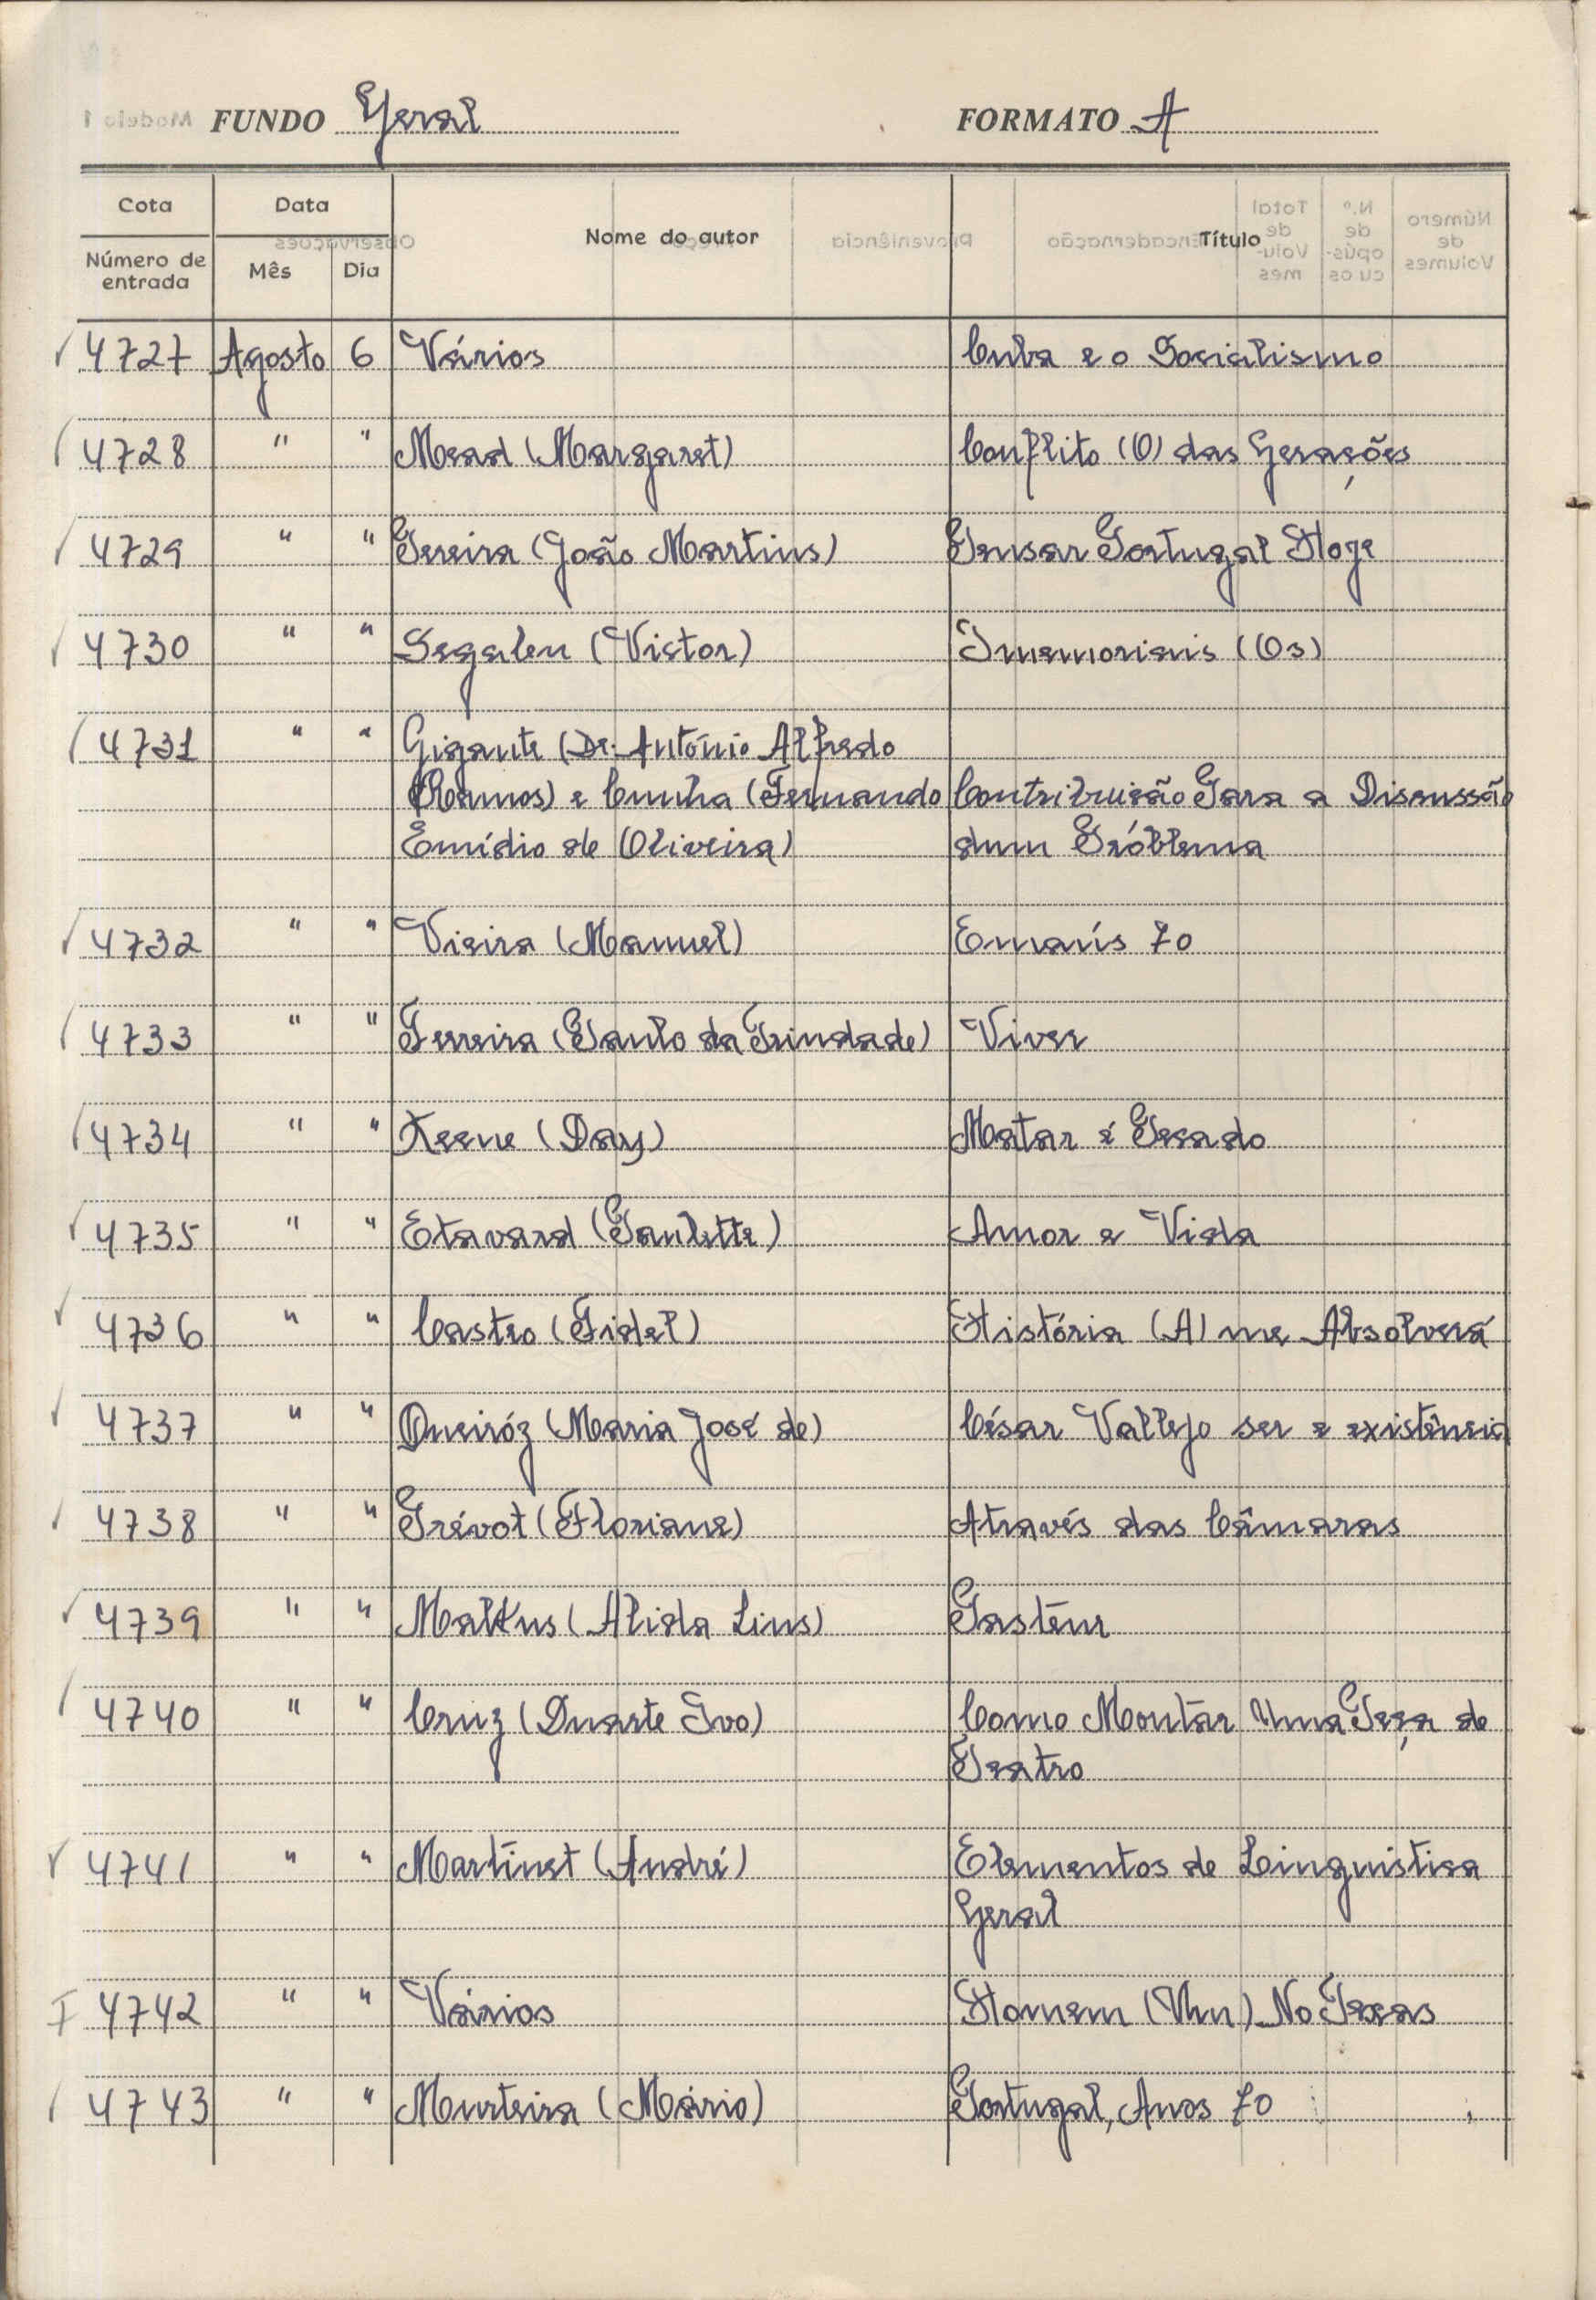 FUNDO Geral FORMATO A
Cota Data Nome do autor Título
Número de entrada Mês Dia
4727 Agosto 6 Vários Cuba e o Socialismo
4728 " " Mead (Margaret) Conflito (O) das Gerações
4729 " " Pereira (João Martins) Pensar Portugal Hoje
4730 " " Segalen (Victor) Imemoriais (Os)
4731 " " Gigante (Dr. António Alfredo
Ramos) e Cunha (Fernando Contribuição Para a Discussão
Emídio de Oliveira) dum Próblema
4732 " " Vieira (Manuel) Emaús 70
4733 " " Ferreira (Paulo da Trindade) Viver
4734 " " Keene (Day) Matar é Pecado
4735 " " Etavard (Paulette) Amor e Vida
4736 " " Castro (Fidel) História (A) me Absolverá
4737 " " Queiróz (Maria José de) César Vallejo ser e existência
4738 " " Prévot (Floriane) Através das Câmaras
4739 " " Malkus (Alida Lins) Pasteur
4740 " " Cruz (Duarte Ivo) Como Montar Uma Peça de
Teatro
4741 " " Martinet (André) Elementos de Linguistica
Geral
4742 " " Vários Homem (Um) No Texas
4743 " " Murteira (Mário) Portugal, Anos 70